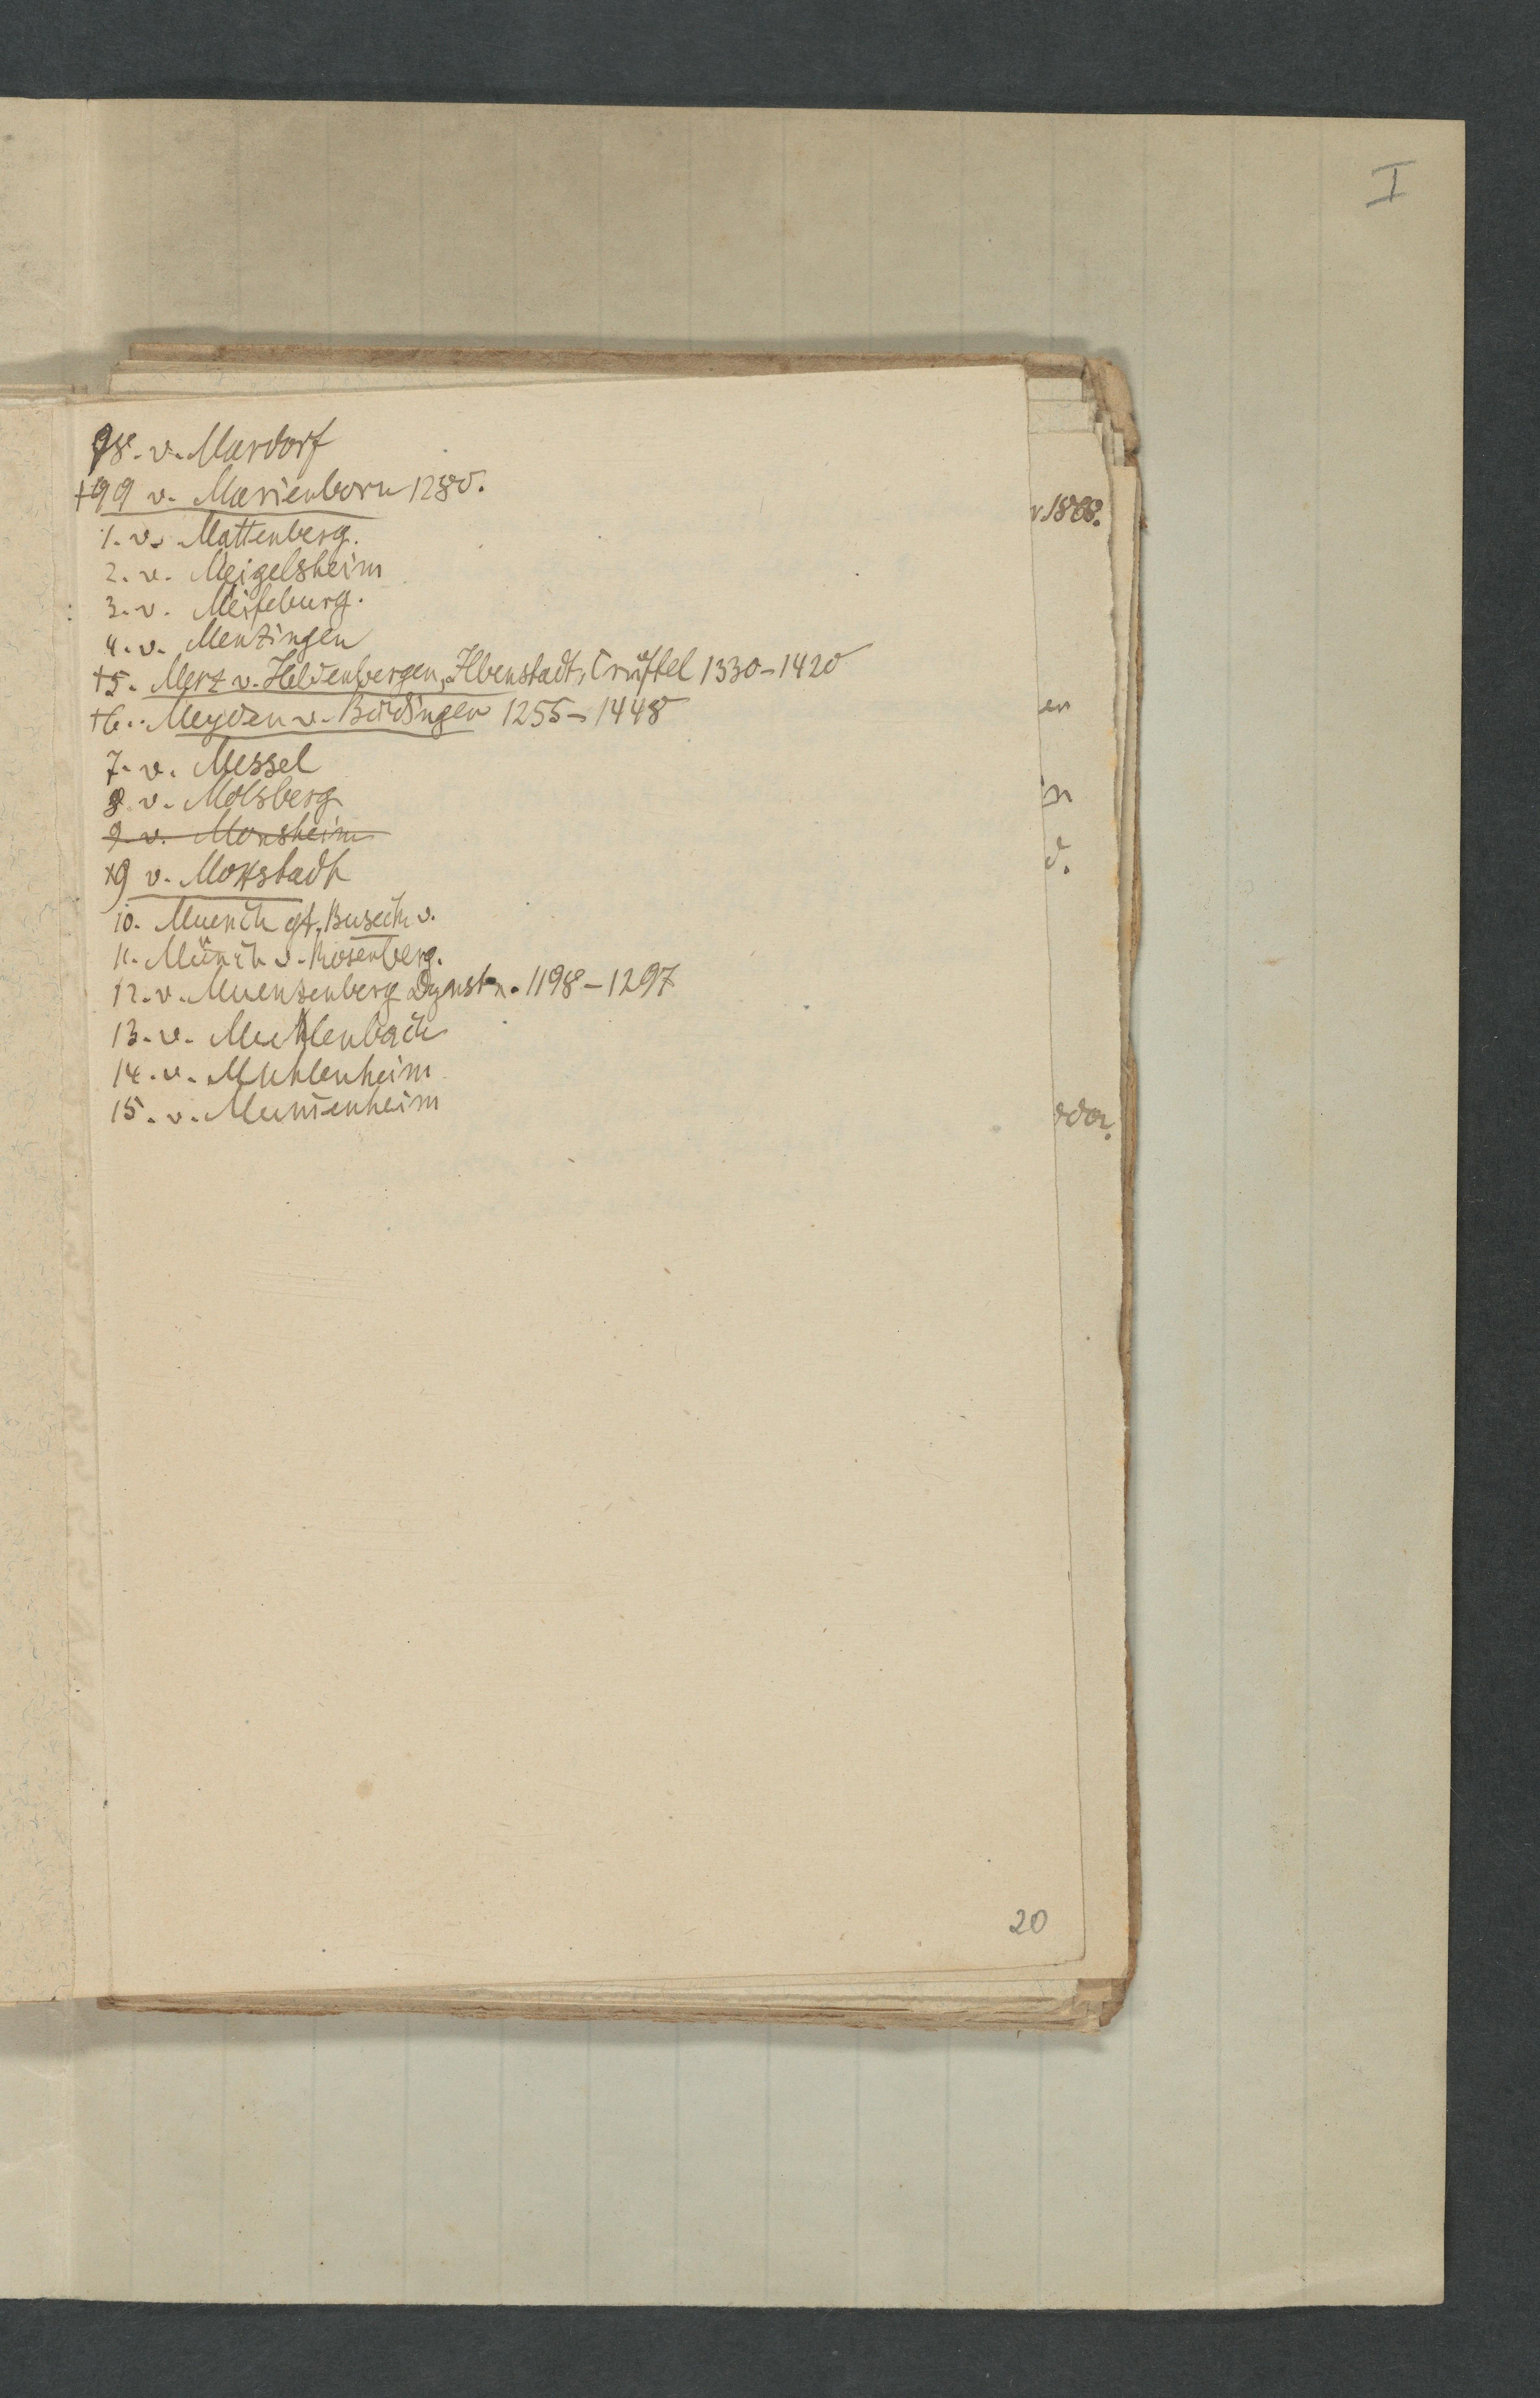 I
98. v. Mardorf
+99 v. Marienborn 1280.
1. v. Mattenberg.
2. v. Meigelsheim
3. v. Meiseburg.
4. v. Menzingen
+5. Merz v. Heldenbergen, Ilbenstadt, Crüftel 1330-1420
+6. Meyden v. Büdingen 1255-1448
7. v. Messel
8. v. Molsberg
9. v. Monsheim
+9 v. Mokstadt
10. Muench gt. Buseck v.
11. Münch v. Rosenberg.
12. v. Muenzenberg Dynast. 1198-1297
13. v. Muhlenbach
14. v. Muhlenheim
15. v. Mumenheim
1868.
en
n
d.
20